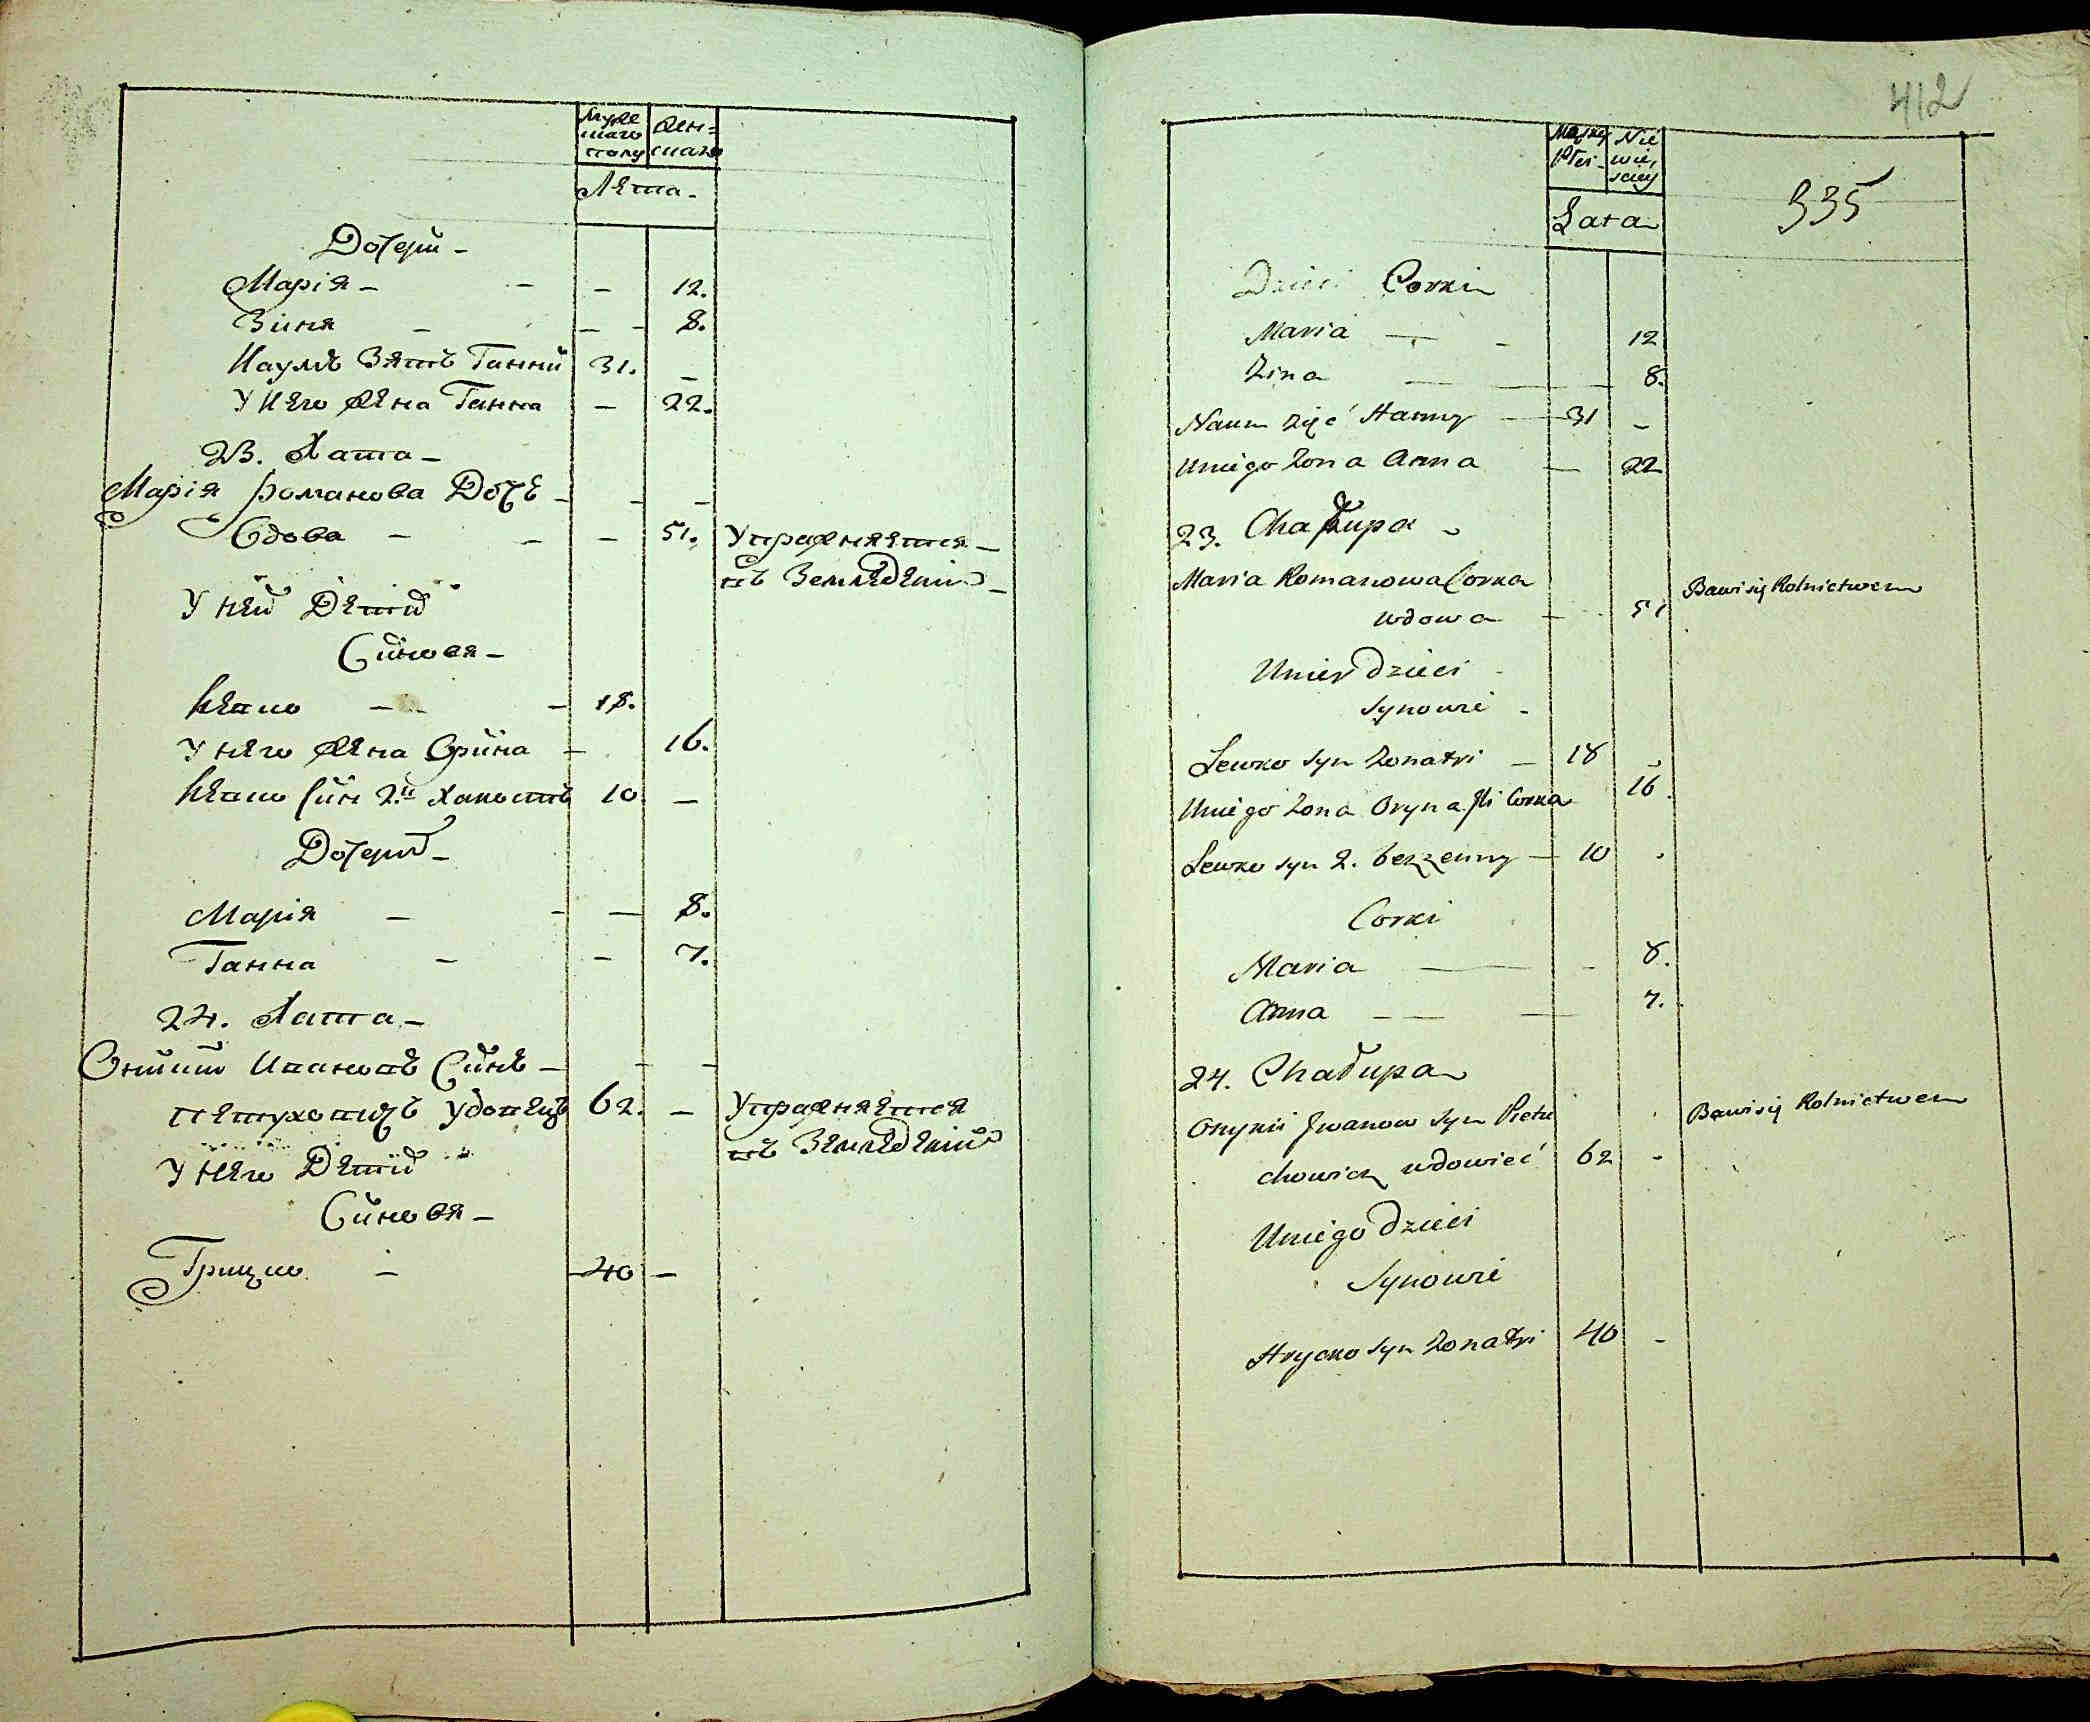 Мужескаго полу Женскаго
Лѣта
Дочери
Марія - - - 12.
Зиня - - - 8.
Наумъ Зять Ганни 31. -
У Него Жена Ганна - 22.
23. Хата
Марія Романова Дочь - - -
Вдова - - - 51. Упражняется
въ Земледелии
У ней Дети
Синовя
Левко - - 18.
У него Жена Орина - 16.
Левко Син 2й Холостъ 10 -
Дочери
Марія - - - 8.
Ганна - - 7.
24. Хата
Оникий Ивановъ Синъ - - -
Петуховичъ Удовецъ 62. - Упражняется
въ Земледелии
У Него Дети
Синовя
Грицко - 40 -
412
Męskey Płci Niewieściey
335
Lata
Dzieci Corki
Maria - - 12
Zina - - 8.
Naum zięć Hanny - 31 -
Uniego Zona Anna - 22
23. Chałupa
Maria Romanowa Corka Bawi się Rolnictwem
wdowa - 51
Uniey Dzieci
Synowie
Lewko Syn Zonaty - 18 -
Uniego Zona Oryna Ili Corka 16.
Lewko Syn 2. bezzenny - 10
Corki
Maria - - 8.
Anna - - 7.
24. Chałupa
Onykii Jwanow Syn Pietu Bawi się Rolnictwem
chowicz wdowieć 62 -
Uniego Dzieci
Synowie
Hrycko Syn Zonaty 40 -